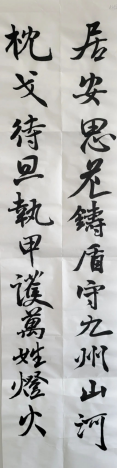 居安思危鑄盾守九州山河
枕戈待旦執甲護萬姓燈火